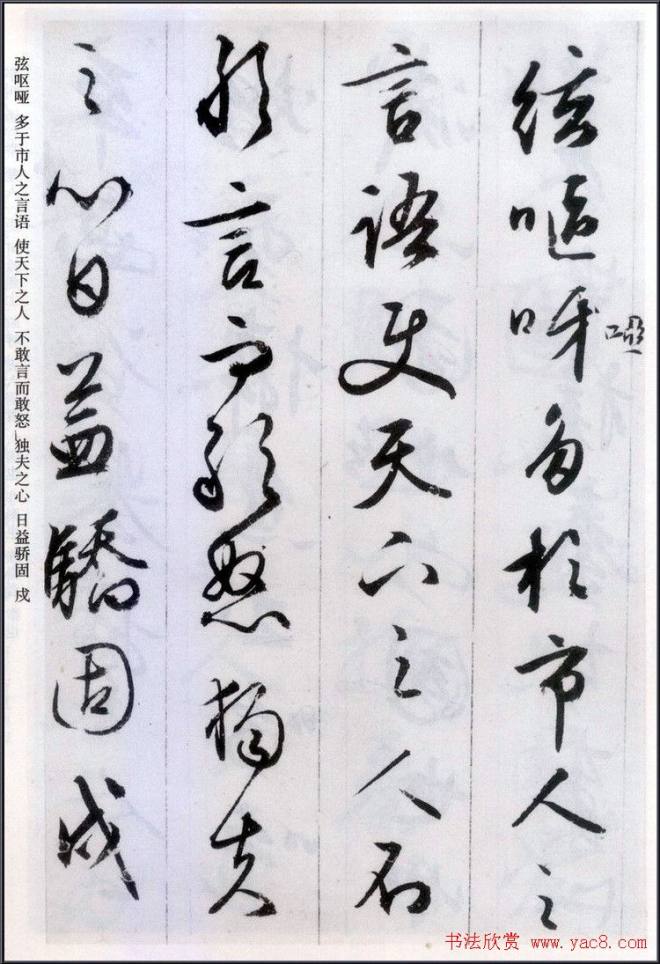 絃嘔呀啞多於市人之
言語使天下之人不
敢言而敢怒獨夫
之心日益驕固戍
弦呕哑 多于市人之言语 使天下之人 不敢言而敢怒 独夫之心 日益骄固 戍
书法欣赏 www.yac8.com